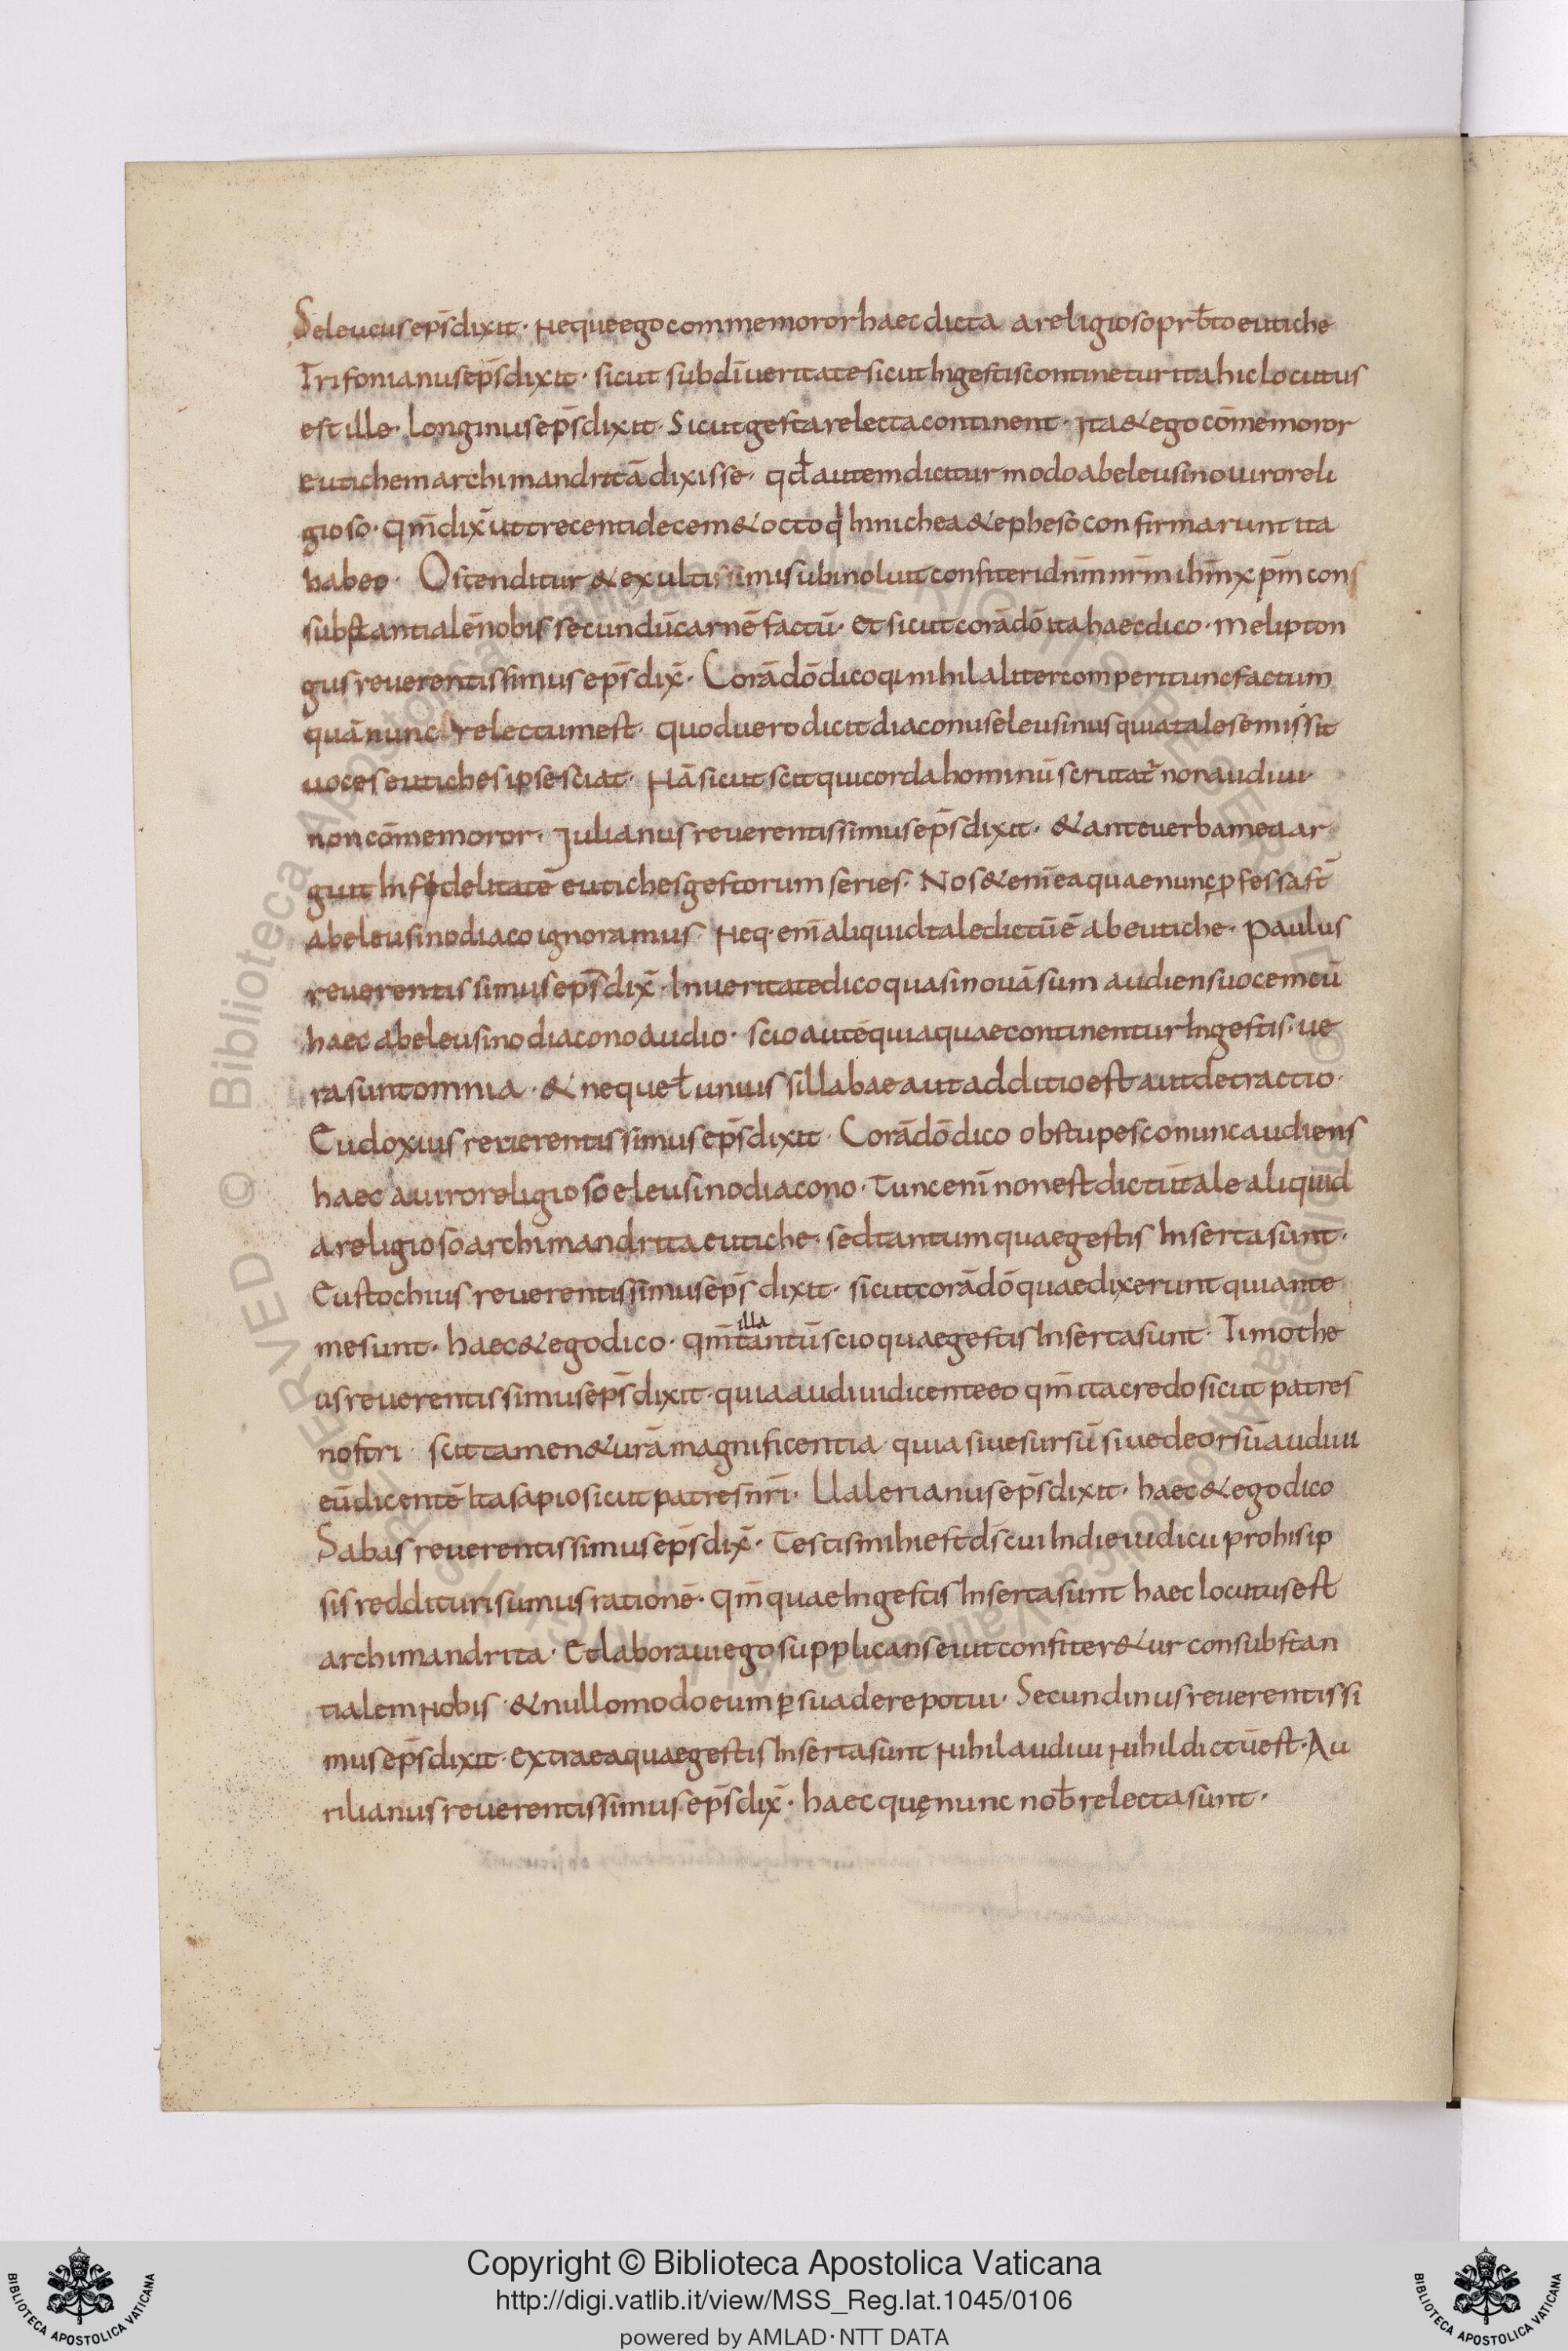 Seleucus ep̄s dixit· Neque ego commemoror haec dicta a religioso prƀto eutiche
Trifonianus ep̄s dixit· sicut sub dī ueritate sicut In gestis continetur ita hic locutus
est ille· longinus ep̄s dixit· Sicut gesta relecta continent· Ita & ego cōmemoror
eutichem archimandritā dixisse· qđ autem dicitur modo ab eleusino uiro reli
gioso· qm̄ dix̄ ut trecenti decem & octo q In nichea & epheso confirmarunt ita
habeo· Ostenditur & ex ultissimis ubi noluit confiteri dn̄m nr̄m ih̄m xp̄m con
substantialē nobis secundū carnē factū· et sicut corā dō ita haec dico· melipton
gus reuerentissimus ep̄s dix̄· Corā dō dico q nihil aliter comperi tunc factum
quā nunc relectum est· quod uero dicit diaconus eleusinus quia tales emissit
uoces eutiches ipse sciat· Nā sicut scit qui corda hominū scrutat̄ non audiui
non cōmemoror· Iulianus reuerentissimus ep̄s dixit· & ante uerba mea ar
guit Infidelitatē eutiches gestorum series· Nos & enī ea quae nunc ꝓfessa st̄
ab eleusino diaco ignoramus· Neq· enī aliquid tale dictū ē ab eutiche· Paulus
reuerentissimus ep̄s dix̄· In ueritate dico quasi nouā sum audiens uocem cū
haec ab eleusino diacono audio· scio autē quia quae continentur In gestis· ue
ra sunt omnia· & neque ł unius sillabae aut additio est aut detractio·
Eudoxius reuerentissimus ep̄s dixit· Corā dō dico obstupesco nunc audiens
haec a uiro religioso eleusino diacono· Tunc enī non est dictū tale aliquid
a religioso archimandrita eutiche· sed tantum quae gestis Inserta sunt·
Eustochius reuerentissimus ep̄s dixit· sicut corā dō quae dixerunt qui ante
me sunt· haec & ego dico· qm̄ illa tantū scio quae gestis Inserta sunt· Timothe
us reuerentissimus ep̄s dixit· quia audiui dicente eo qm̄ ita credo sicut patres
nostri· scit tamen & urā magnificentia quia siue sursū siue deorsū audiui
eū dicentē Ita sapio sicut patres nr̄i· Ualerianus ep̄s dixit· haec & ego dico
Sabas reuerentissimus ep̄s dix̄· Testis mihi est ds̄ cui In die iudicii pro his ip
sis reddituri sumus rationē· qm̄ quae In gestis Inserta sunt haec locutus est
archimandrita· Et laboraui ego supplicans ei ut confiter&ur consubstan
tialem nobis· & nullo modo eum ꝑsuadere potui· Secundinus reuerentissi
mus ep̄s dixit· extra ea quae gestis Inserta sunt Nihil audiui Nihil dictū est· Au
rilianus reuerentissimus ep̄s dix̄· haec quę nunc noƀ relecta sunt·
Copyright © Biblioteca Apostolica Vaticana
http://digi.vatlib.it/view/MSS_Reg.lat.1045/0106
powered by AMLAD·NTT DATA
BIBLIOTECA APOSTOLICA VATICANA
BIBLIOTECA APOSTOLICA VATICANA